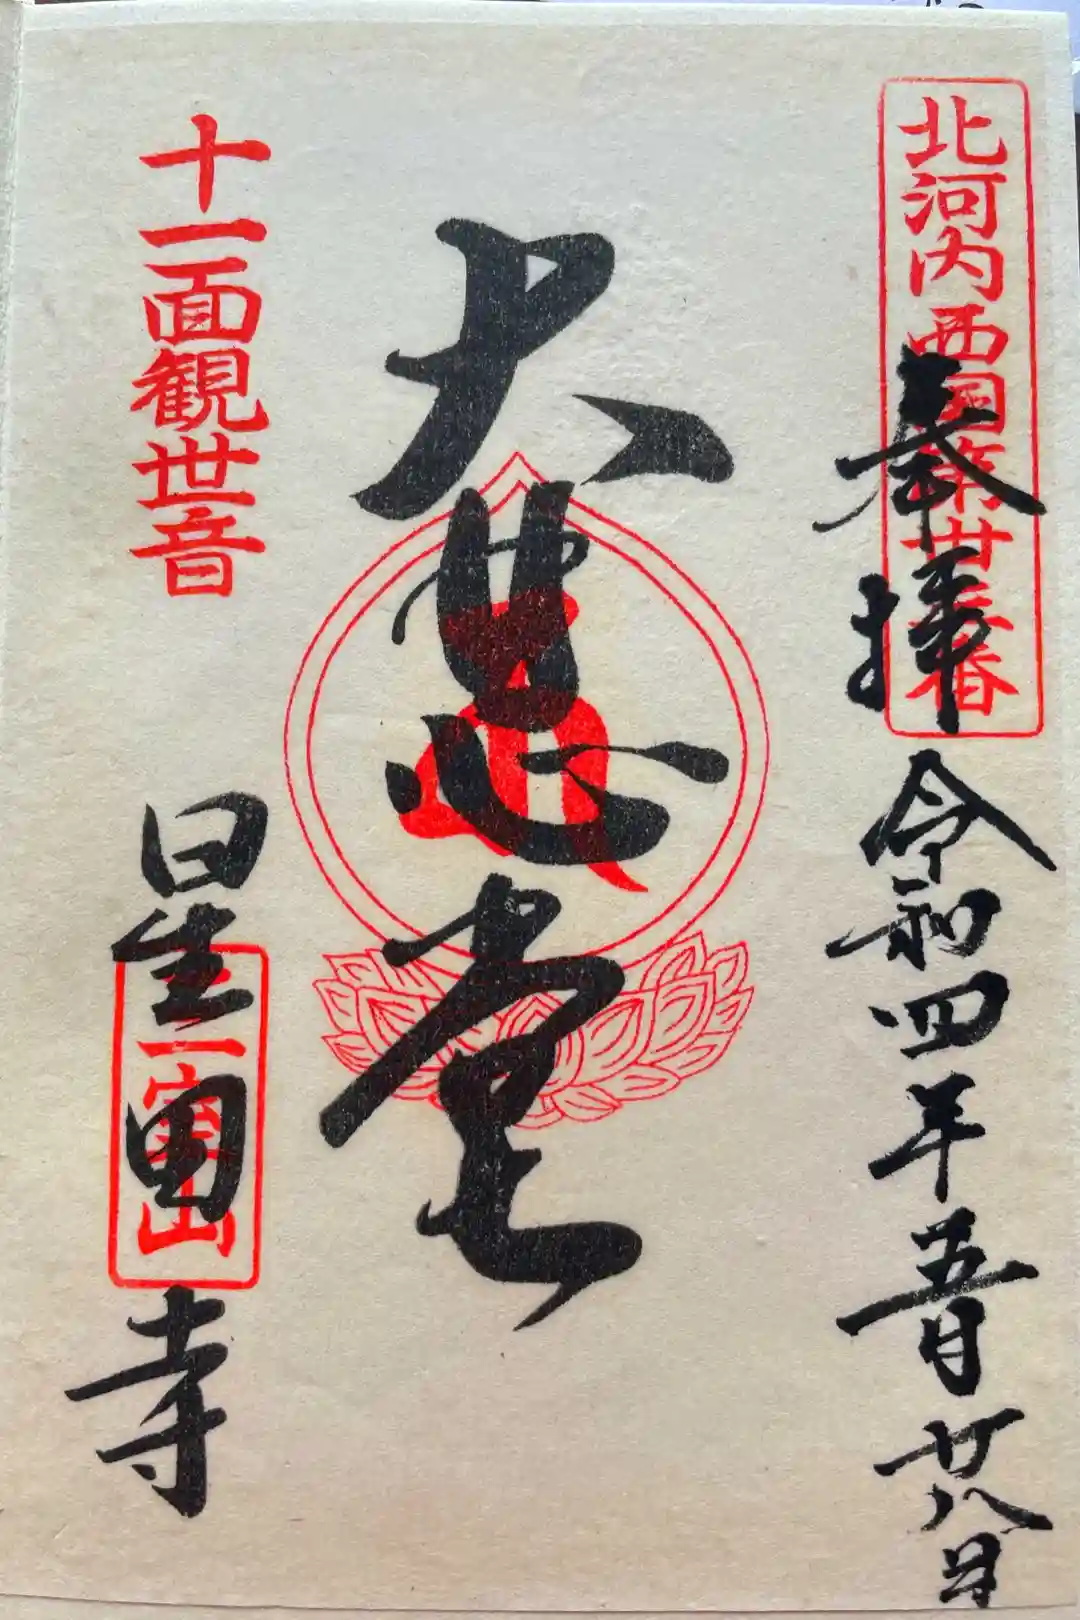 北河内西国第卅番
奉拝 令和四年五月廿八日
大悲堂
十一面観世音
星田寺